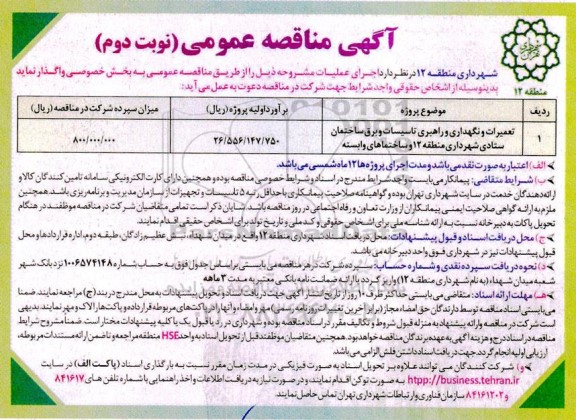 آگهی مناقصه عمومی (نوبت دوم)
منطقه ۱۲
شهرداری منطقه ۱۲ در نظر دارد اجرای عملیات مشروحه ذیل را از طریق مناقصه عمومی به بخش خصوصی واگذار نماید
بدینوسیله از اشخاص حقوقی واجد شرایط جهت شرکت در مناقصه دعوت به عمل می آید:
ردیف موضوع پروژه برآورد اولیه پروژه (ریال) میزان سپرده شرکت در مناقصه (ریال)
۱ تعمیرات و نگهداری و راهبری تاسیسات و برق ساختمان ستادی شهرداری منطقه ۱۲ و ساختمانهای وابسته ۲۶/۵۵۶/۱۴۷/۷۵۰ ۸۰۰/۰۰۰/۰۰۰
الف) اعتبار به صورت نقدی می باشد و مدت اجرای پروژه ها ۱۲ ماه شمسی می باشد.
ب) شرایط متقاضی: پیمانکار می بایست واجد شرایط مندرج در اسناد و شرایط خصوصی مناقصه بوده و همچنین دارای کارت الکترونیکی سامانه تامین کنندگان کالا و
ارائه دهندگان خدمت در سایت شهرداری تهران بوده و گواهینامه صلاحیت پیمانکاری با حداقل رتبه ۵ تاسیسات و تجهیزات از سازمان مدیریت و برنامه ریزی باشد. همچنین
ملزم به ارائه گواهی صلاحیت ایمنی پیمانکاران از وزارت تعاون و رفاه اجتماعی در روز مناقصه باشد. شایان ذکر است تمامی متقاضیان شرکت در مناقصه موظفند در هنگام
تحویل پاکات به دبیرخانه نسبت به ارائه شناسه ملی برای اشخاص حقوقی و کد ملی و تاریخ تولد برای اشخاص حقیقی اقدام نمایند.
ج) محل دریافت اسناد و قبول پیشنهادات: محل دریافت اسناد شهرداری منطقه ۱۲ واقع در میدان شهدا، نبش عظیم زادگان، طبقه دوم، اداره قراردادها و محل
قبول پیشنهادات نیز در شهرداری فوق واحد دبیرخانه می باشد.
د) نحوه دریافت سپرده نقدی و شماره حساب: سپرده شرکت در هر مناقصه می بایستی بر اساس جدول فوق به حساب شماره ۱۰۰۶۵۷۴۱۴۸ نزد بانک شهر
شعبه میدان شهدا، (به نام شهرداری منطقه ۱۲) واریز گردد یا ارائه ضمانت نامه بانکی معتبر به مدت ۳ ماهه
هـ) مهلت ارائه اسناد: متقاضی می بایستی حداکثر ظرف ۱۰ روز از تاریخ انتشار آگهی جهت دریافت اسناد و تحویل پیشنهادات به محل مندرج در بند (ج) مراجعه نمایند. ضمنا
می بایستی اسناد مناقصه توسط دارندگان حق امضاء مجاز (برابر آخرین تغییرات روزنامه رسمی) مهر و امضاء و آنها را در پاکت های مربوطه قرار داده و پاکت ها را لاک و مهر نمایند. بدیهی
است شرکت در مناقصه و ارائه پیشنهاد به منزله قبول شروط و تکالیف مقرر در اسناد مناقصه بوده و شهرداری در رد یا قبول یک یا کلیه پیشنهادات مختار است. ضمنا مشروح شرایط
مناقصه در اسناد درج و هزینه آگهی به عهده برندگان مناقصه خواهد بود. همچنین متقاضیان موظفند قبل از تحویل اسناد به واحد HSE منطقه مراجعه و تاضمن ارائه مستندات مربوطه،
ارزیابی اولیه انجام گردد. جهت دریافت اسناد داشتن فلش الزامی می باشد.
و) شرکت کنندگان می توانند علاوه بر تحویل اسناد به صورت فیزیکی در مدت زمان مقرر نسبت به بارگذاری اسناد (پاکت الف) در سایت
http://business.tehran.ir به صورت توکن اقدام نمایند، و در صورت نیاز به دریافت اطلاعات و اخذ راهنمایی با شماره تلفن های ۸۴۱۶۱۷
و ۸۴۱۶۱۲۰۲ سازمان فناوری و ارتباطات شهرداری تهران تماس حاصل نمایند.